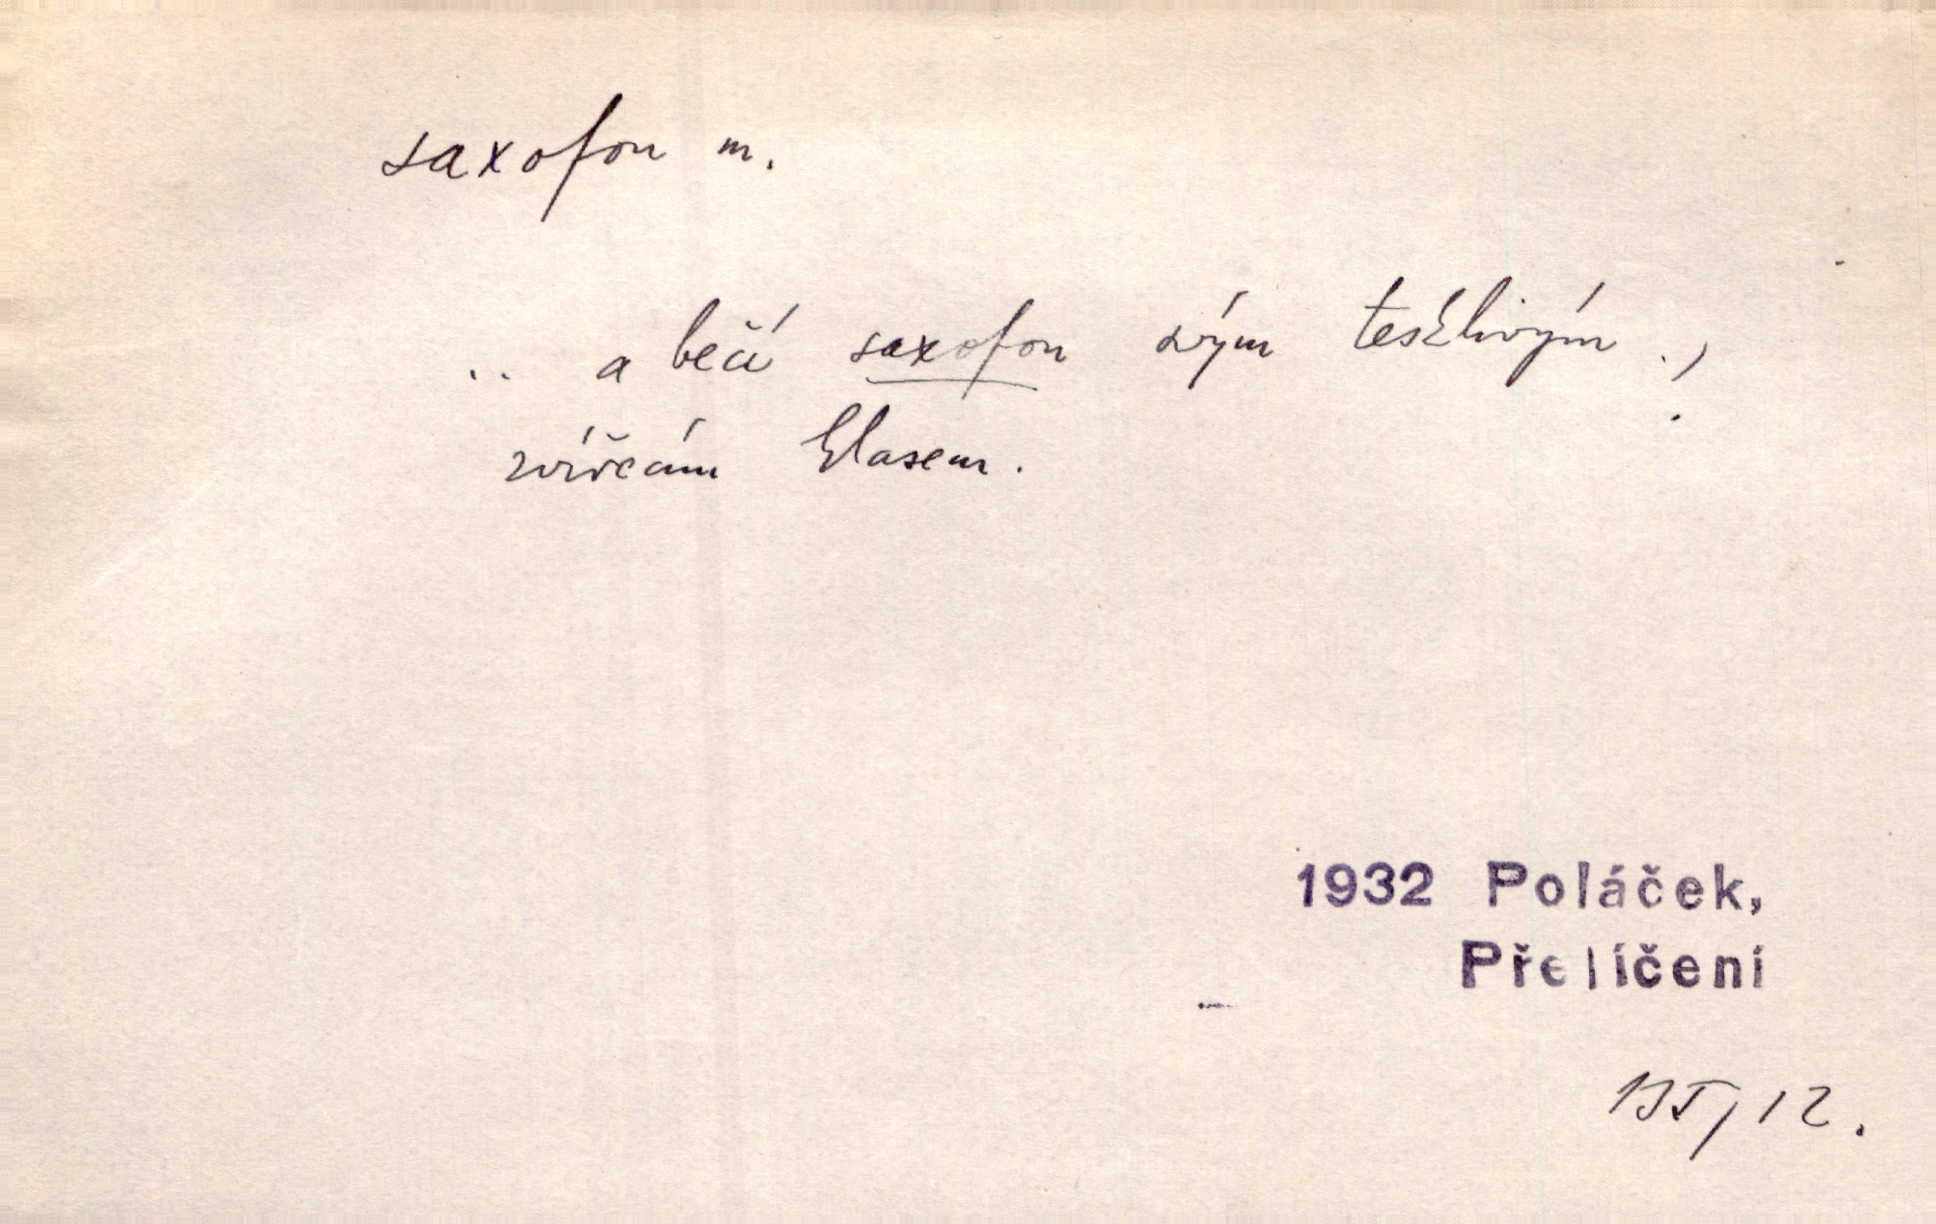 saxofon m.
.. a bečí saxofon svým tesklivým,
zvířecím hlasem.
1932 Poláček,
Přelíčení
135, 12.